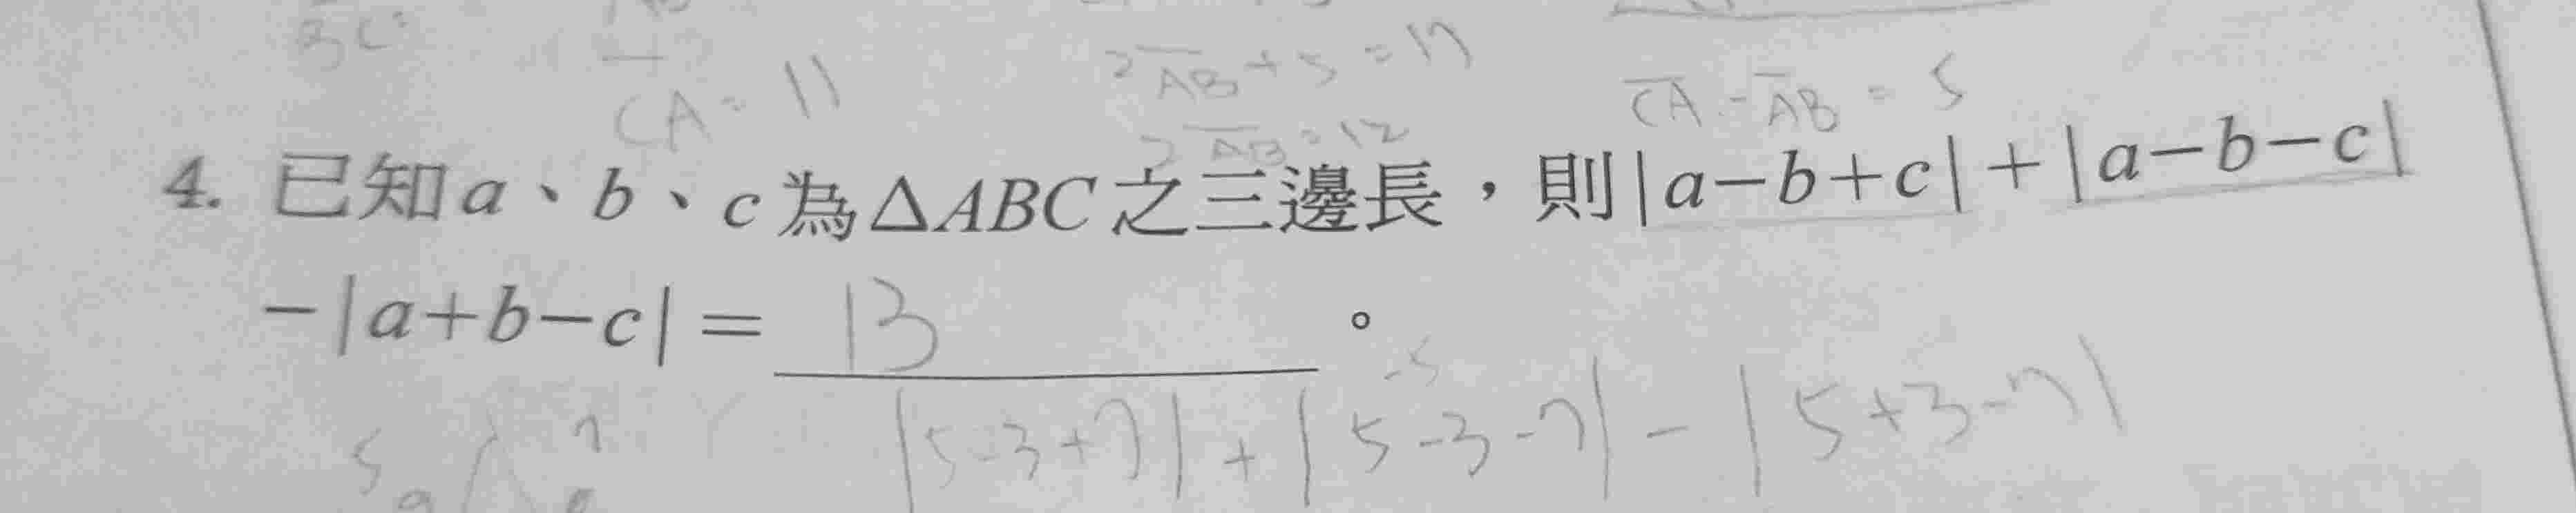 BC=
CA=11
2AB+5=17
2AB=12
CA-AB=5
4. 已知a、b、c為△ABC之三邊長，則|a-b+c|+|a-b-c|
-|a+b-c|= 13 。
-5
|5-3+7|+|5-3-7|-|5+3-7|
5 7
a